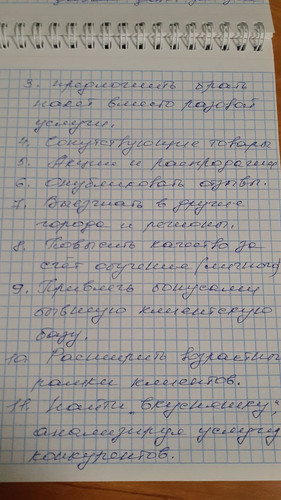 3. предложить брать
пакет вместо разовой
услуги.
4. Сопутствующие товары
5. Акции и распродажи
6. Опубликовать отзывы.
7. Выезжать в другие
города и регионы.
8. Повысить качество за
счёт обучения (личного)
9. Привлечь бонусами
бывшую клиентскую
базу.
10. Расширить возрастные
рамки клиентов.
11. Найти "вкусняшку",
анализируя услугу
конкурентов.